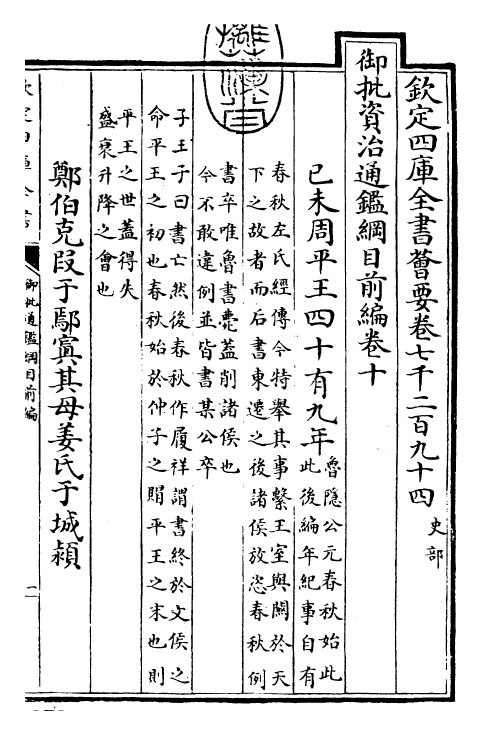 欽定四庫全書薈要卷七千二百九十四 史部
御批資治通鑑綱目前編卷十
己未周平王四十有九年
魯隱公元春秋始此
此後編年紀事自有
春秋左氏經傳今特舉其事繫王室與關於天
下之故者而后書東遷之後諸侯放恣春秋例
書卒唯魯書薨蓋削諸侯也
今不敢違例並皆書某公卒
子王子曰書亡然後春秋作履祥謂書終於文侯之
命平王之初也春秋始於仲子之賵平王之末也則
平王之世蓋得失
盛衰升降之會也
鄭伯克段于鄢寘其母姜氏于城潁
御批通鑑綱目前編
一